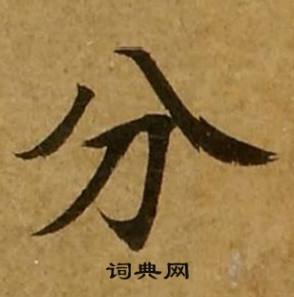 分
词典网